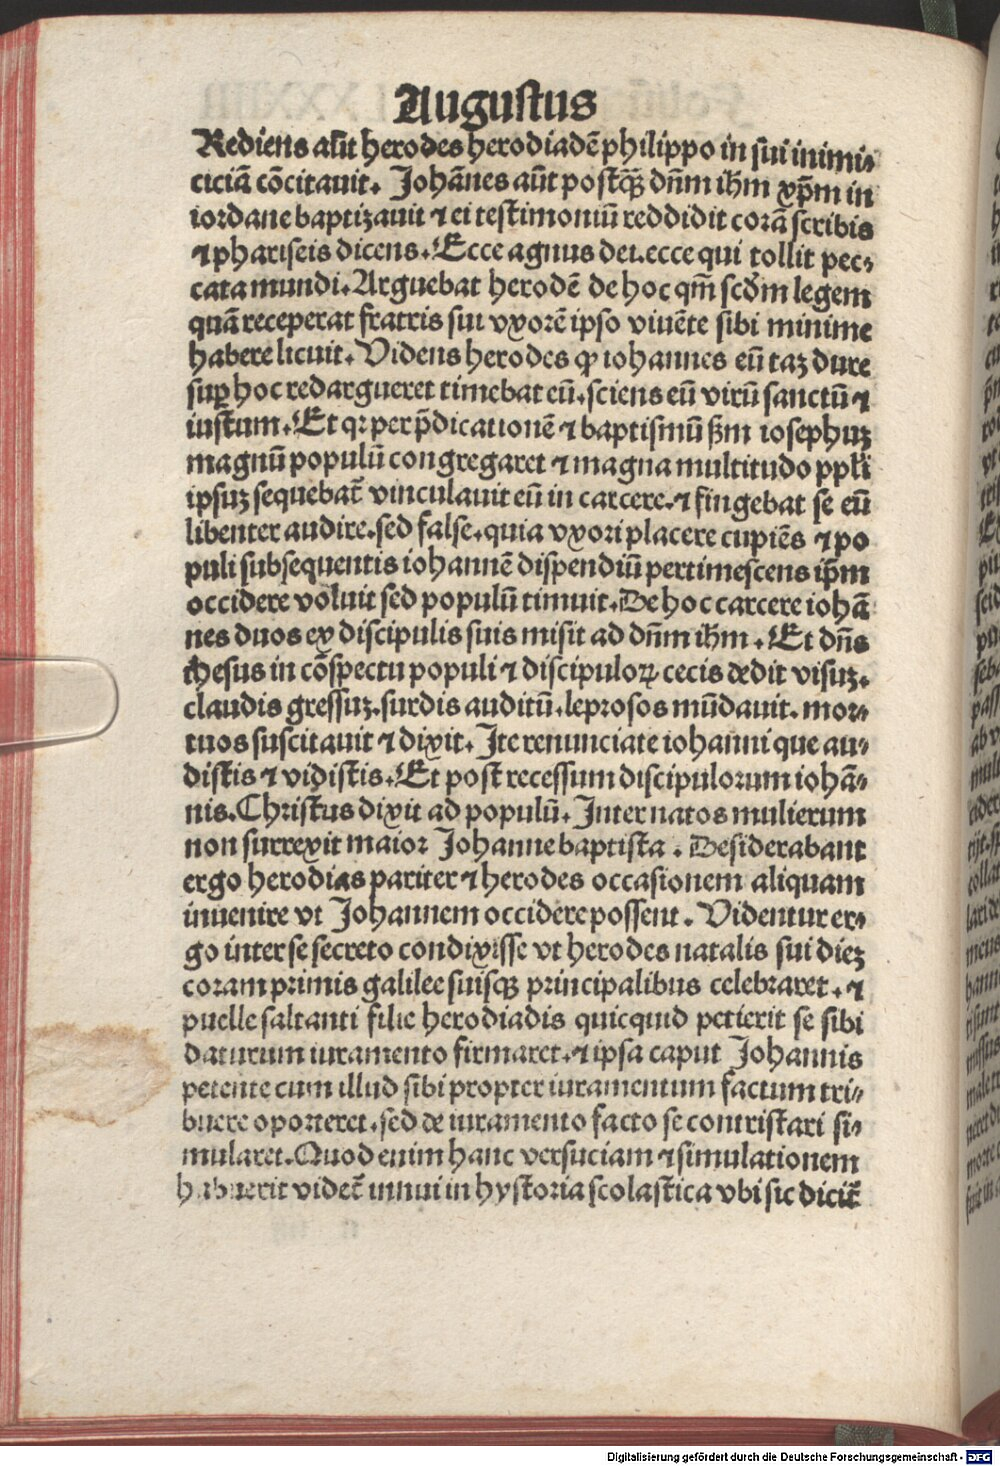 Augustus
Rediens aūt herodes herodiadē philippo in sui inimi⸗
ciciā cōcitauit. Johānes aūt postqꝫ dn̄m ihm xp̄m in
iordane baptizauit ⁊ ei testimoniū reddidit corā scribis
⁊ phariseis dicens. Ecce agnus dei. ecce qui tollit pec⸗
cata mundi. Arguebat herodē de hoc qm̄ scd̄m legem
quā receperat fratris sui vxorē ipso viuēte sibi minime
habere licuit. Videns herodes ꝙ iohannes eū taꝫ dure
suꝑ hoc redargueret timebat eū. sciens eū virū sanctū ⁊
iustum. Et qꝛ per p̄dicationē ⁊ baptismū ẜm iosephuꝫ
magnū populū congregaret ⁊ magna multitudo ppl̄i
ipsuꝫ sequebat̄ vinculauit eū in carcere. ⁊ fingebat se eū
libenter audire. sed false. quia vxori placere cupiēs ⁊ po
puli subsequentis iohannē dispendiū pertimescens ip̄m
occidere voluit sed populū timuit. De hoc carcere iohā
nes duos ex discipulis suis misit ad dn̄m ihm. Et dn̄s
ihesus in cōspectu populi ⁊ discipuloꝝ cecis dedit visuꝫ.
claudis gressuꝫ. surdis auditū. leprosos mūdauit. mor⸗
tuos suscitauit ⁊ dixit. Ite renunciate iohanni que au⸗
distis ⁊ vidistis. Et post recessum discipulorum iohā⸗
nis. Christus dixit ad populū. Inter natos mulierum
non surrexit maior Johanne baptista. Desiderabant
ergo herodias pariter ⁊ herodes occasionem aliquam
inuenire vt Johannem occidere possent. Videntur er⸗
go inter se secreto condixisse vt herodes natalis sui dieꝫ
coram primis galilee suisqꝫ principalibus celebraret. ⁊
puelle saltanti filie herodiadis quicquid petierit se sibi
daturum iuramento firmaret. ⁊ ipsa caput Johannis
petente cum illud sibi propter iuramentum factum tri⸗
buere oporteret. sed de iuramento facto se contristari si⸗
mularet. Quod enim hanc versuciam ⁊ simulationem
habuerit videt̄ innui in hystoria scolastica vbi sic dicit̄
Digitalisierung gefördert durch die Deutsche Forschungsgemeinschaft - DFG